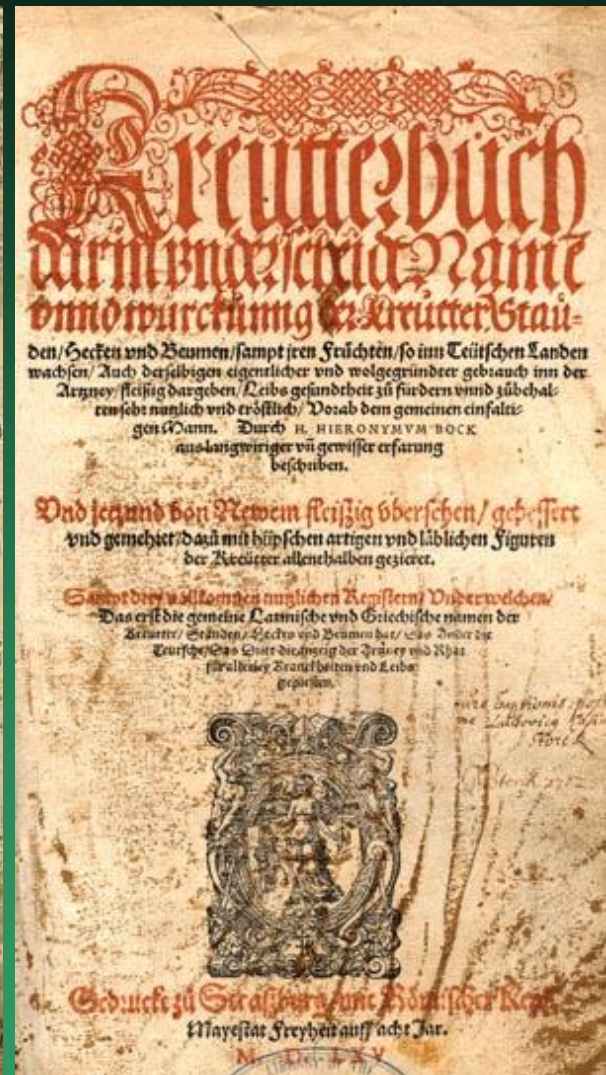 Kreütterbůch
darin̄ vnderscheid Namē
vnnd würckung der Kreütter Stau-
den/Hecken vnd Beumen/sampt jren Früchten/so inn Teütschen Landen
wachsen/Auch derselbigen eigentlicher vnd wolgegründter gebrauch inn der
Artzney/fleißig dargeben/Leibs gesundtheit zů fürdern vnnd zůbehal-
ten sehr nutzlich vnd tröstlich/Vorab dem gemeinen einfalti-
gen Mann. Durch H. HIERONYMVM BOCK
aus langwiriger vn̄ gewisser erfarung
beschriben.
Vnd jetzund von Newem fleißig vbersehen/gebessert
vnd gemehret/dazů mit hüpschen artigen vnd läblichen Figuren
der Kreütter allenthalben gezieret.
Sampt drey vollkommen nutzlichen Registern/Vnder welchen/
Das erst die gemeine Latinische vnd Griechische namen der
Kreütter/Stauden/Hecken vnd Beumen hat/Das Ander die
Teutsche/Das Dritt die anzeig der Artzney vnd Rhat
für allerley Kranckheiten vnd Leibs
gepresten.
Gedruckt zů Straßburg/mit Römischer Keys.
Mayestat Freyheit auff acht Jar.
M. D. LXV